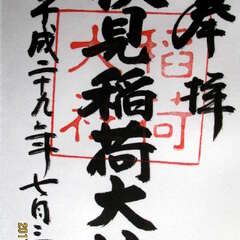 奉拝
伏見稲荷大社
稲荷
大社
平成二十九年七月三
201